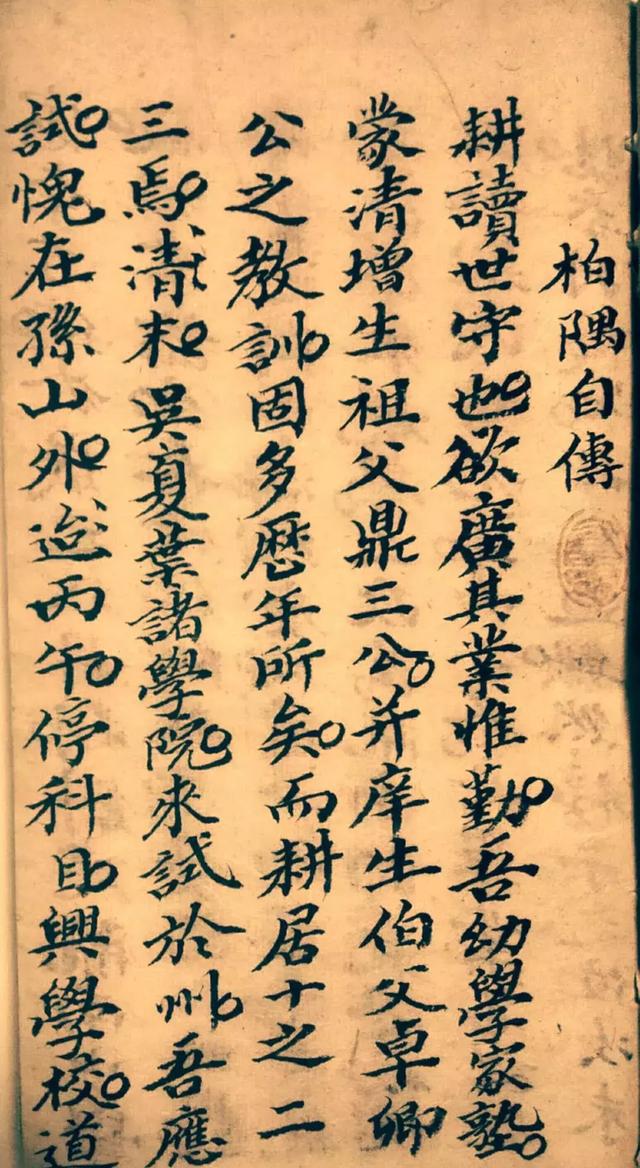 柏隅自傳
耕讀世守也欲廣其業惟勤吾幼學家塾
蒙清增生祖父鼎三公并庠生伯父卓卿
公之教訓固多歷年所矣而耕居十之二
三焉清末吳夏葉諸學院來試於州吾應
試愧在孫山外迨丙午停科目興學校道